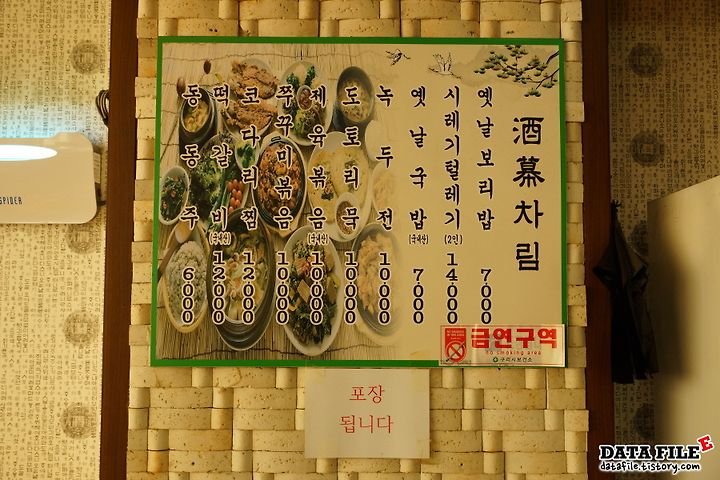 酒幕차림
옛날보리밥 7,000
시레기털레기(2인) 14,000
옛날국밥(국내산) 7,000
녹두전 10,000
도토리묵 10,000
제육볶음(국내산) 10,000
쭈꾸미볶음 10,000
코다리찜 12,000
떡갈비(국내산) 12,000
동동주 6,000
금연구역
no smoking area
구리시보건소
포장
됩니다
SPIDER
DATA FILE
datafile.tistory.com